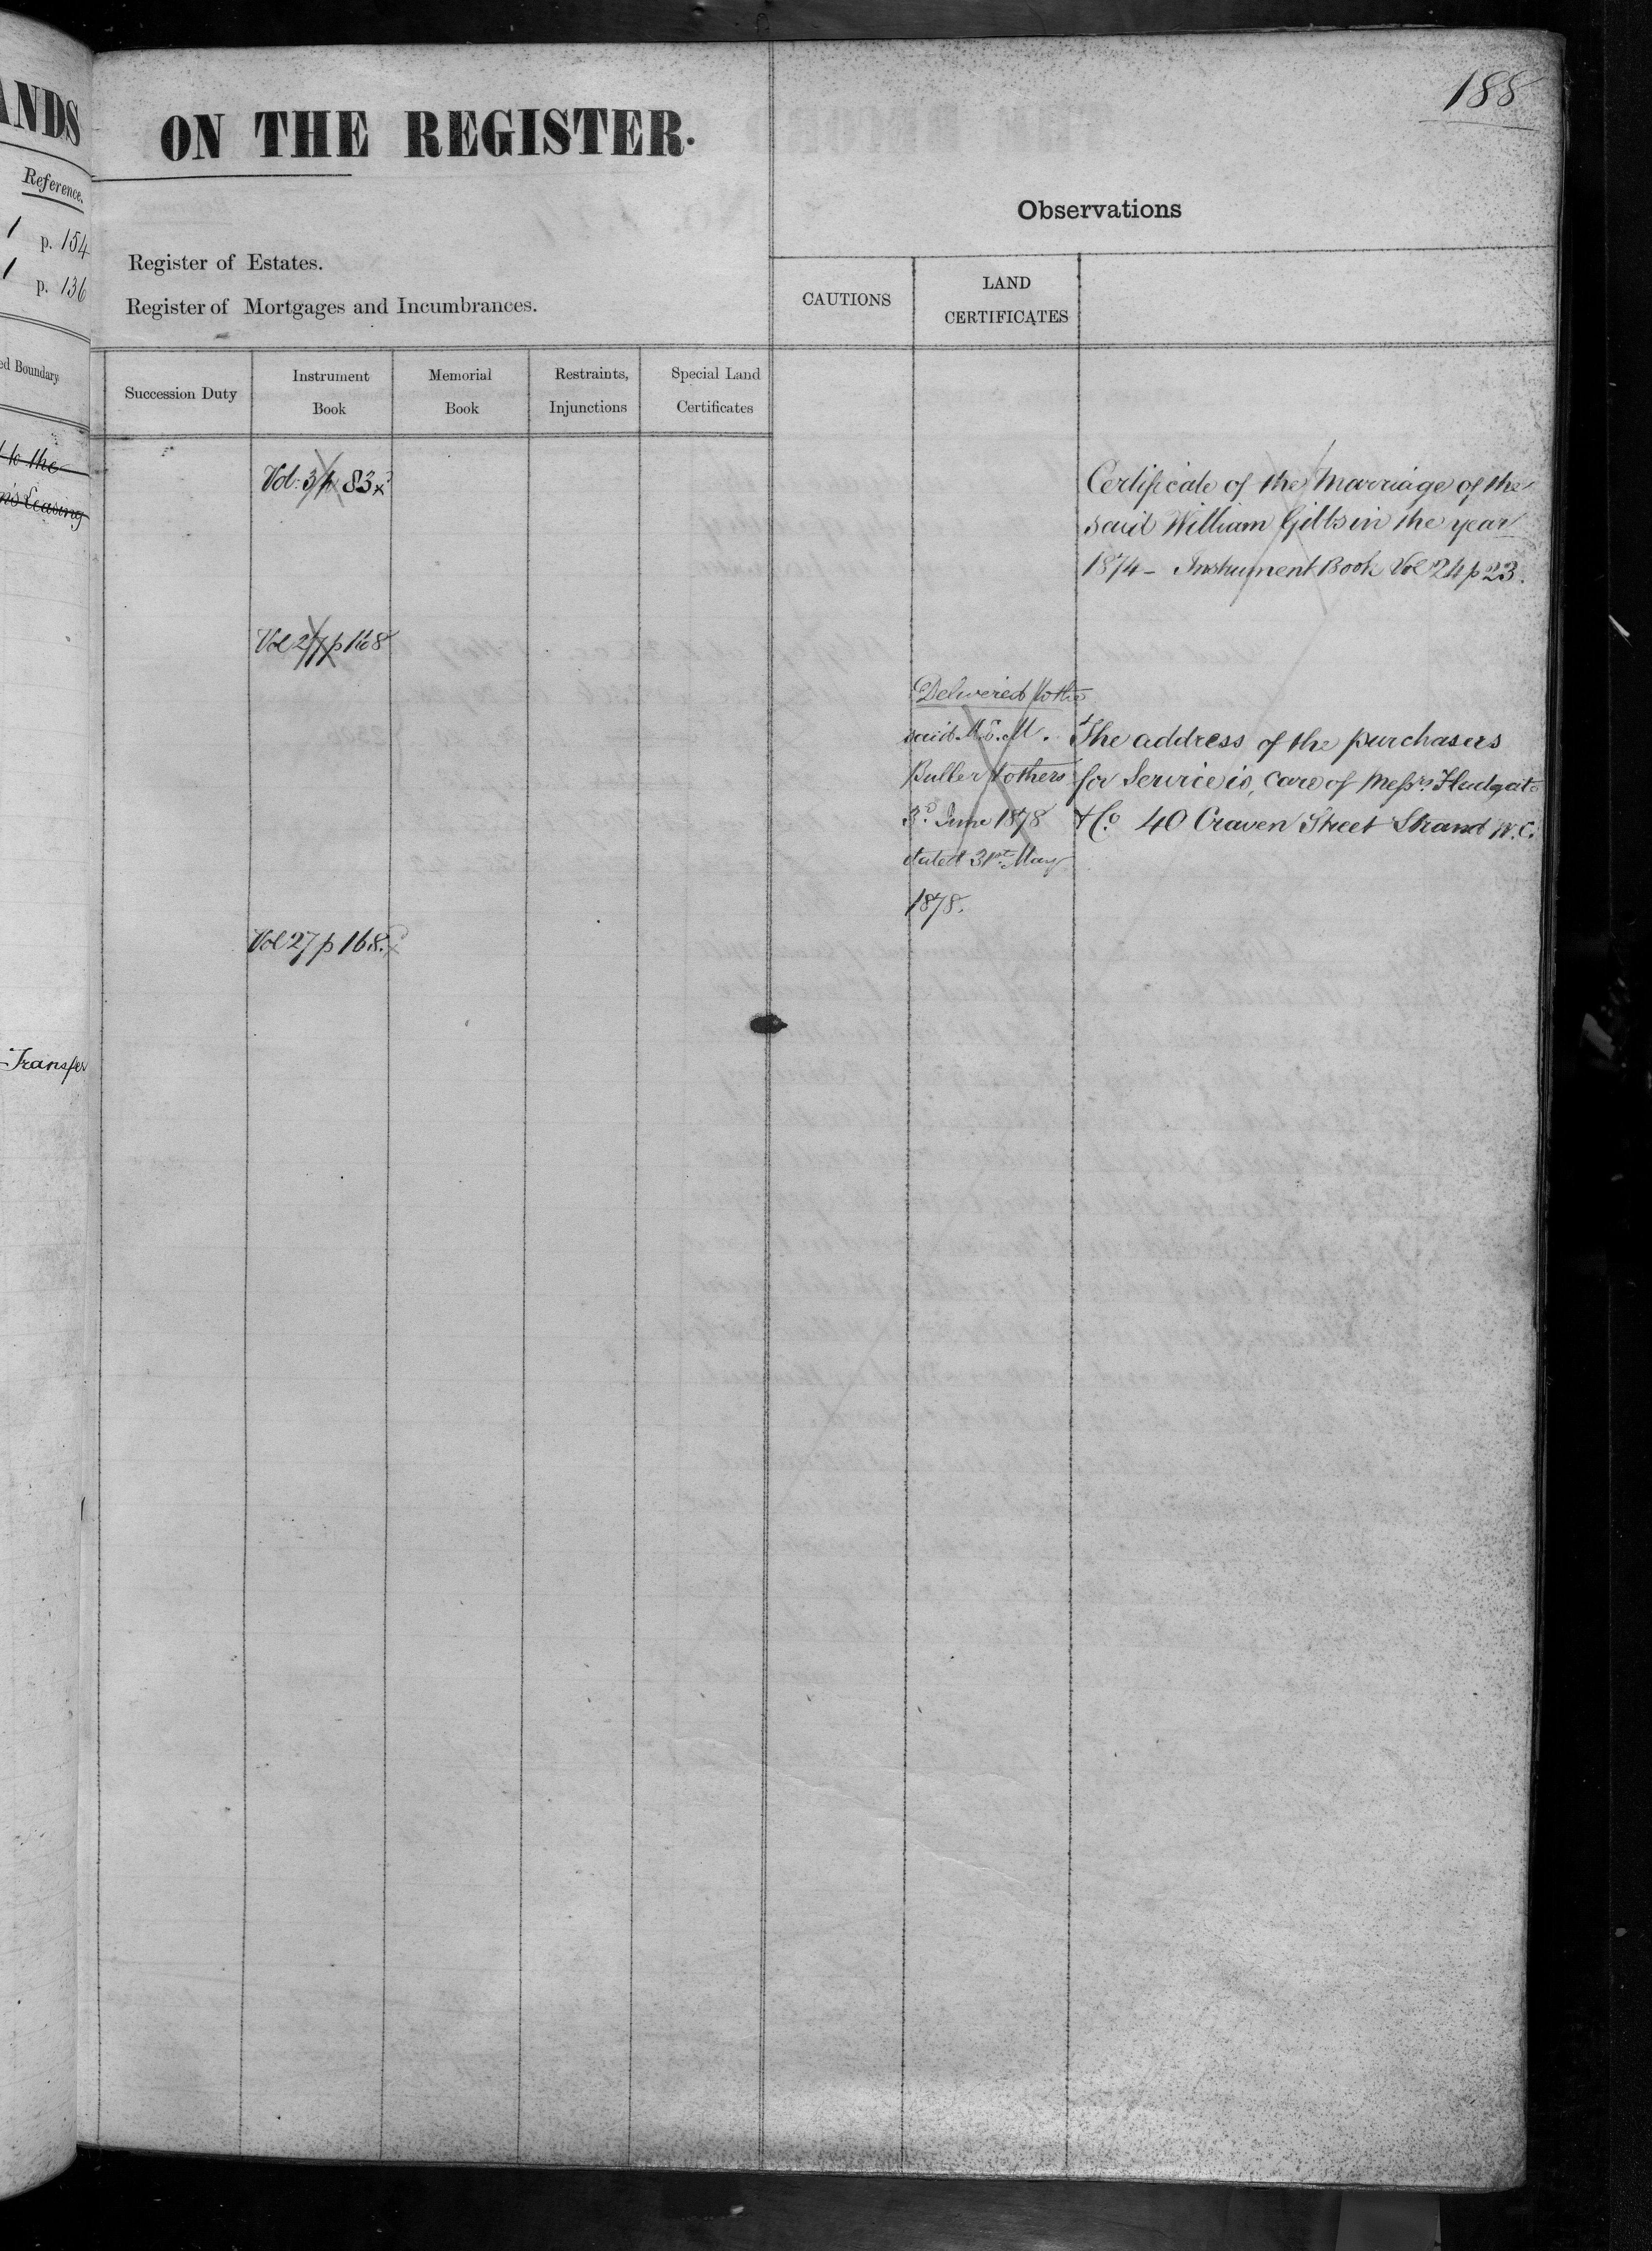 ANDS
Reference.
1 p. 154
1 p. 136
ed Boundary
to the
n's Leasing
Transfer
188
ON THE REGISTER.
Observations
Register of Estates.
Register of Mortgages and Incumbrances.
CAUTIONS
LAND
CERTIFICATES
Succession Duty
Instrument
Book
Memorial
Book
Restraints,
Injunctions
Special Land
Certificates
Vol: 3 p 83
Certificate of the Marriage of the
said William Gibbs in the year
1874 - Instrument Book Vol 24 p 23.
Vol 27 p 168
Delivered to the
said M. E. M.
Buller & others
3d. June 1878
dated 31st. May
1878.
The address of the purchasers
for Service is, care of Messrs.
& Co. 40 Craven Street Strand W.C.
Vol 27 p 168.